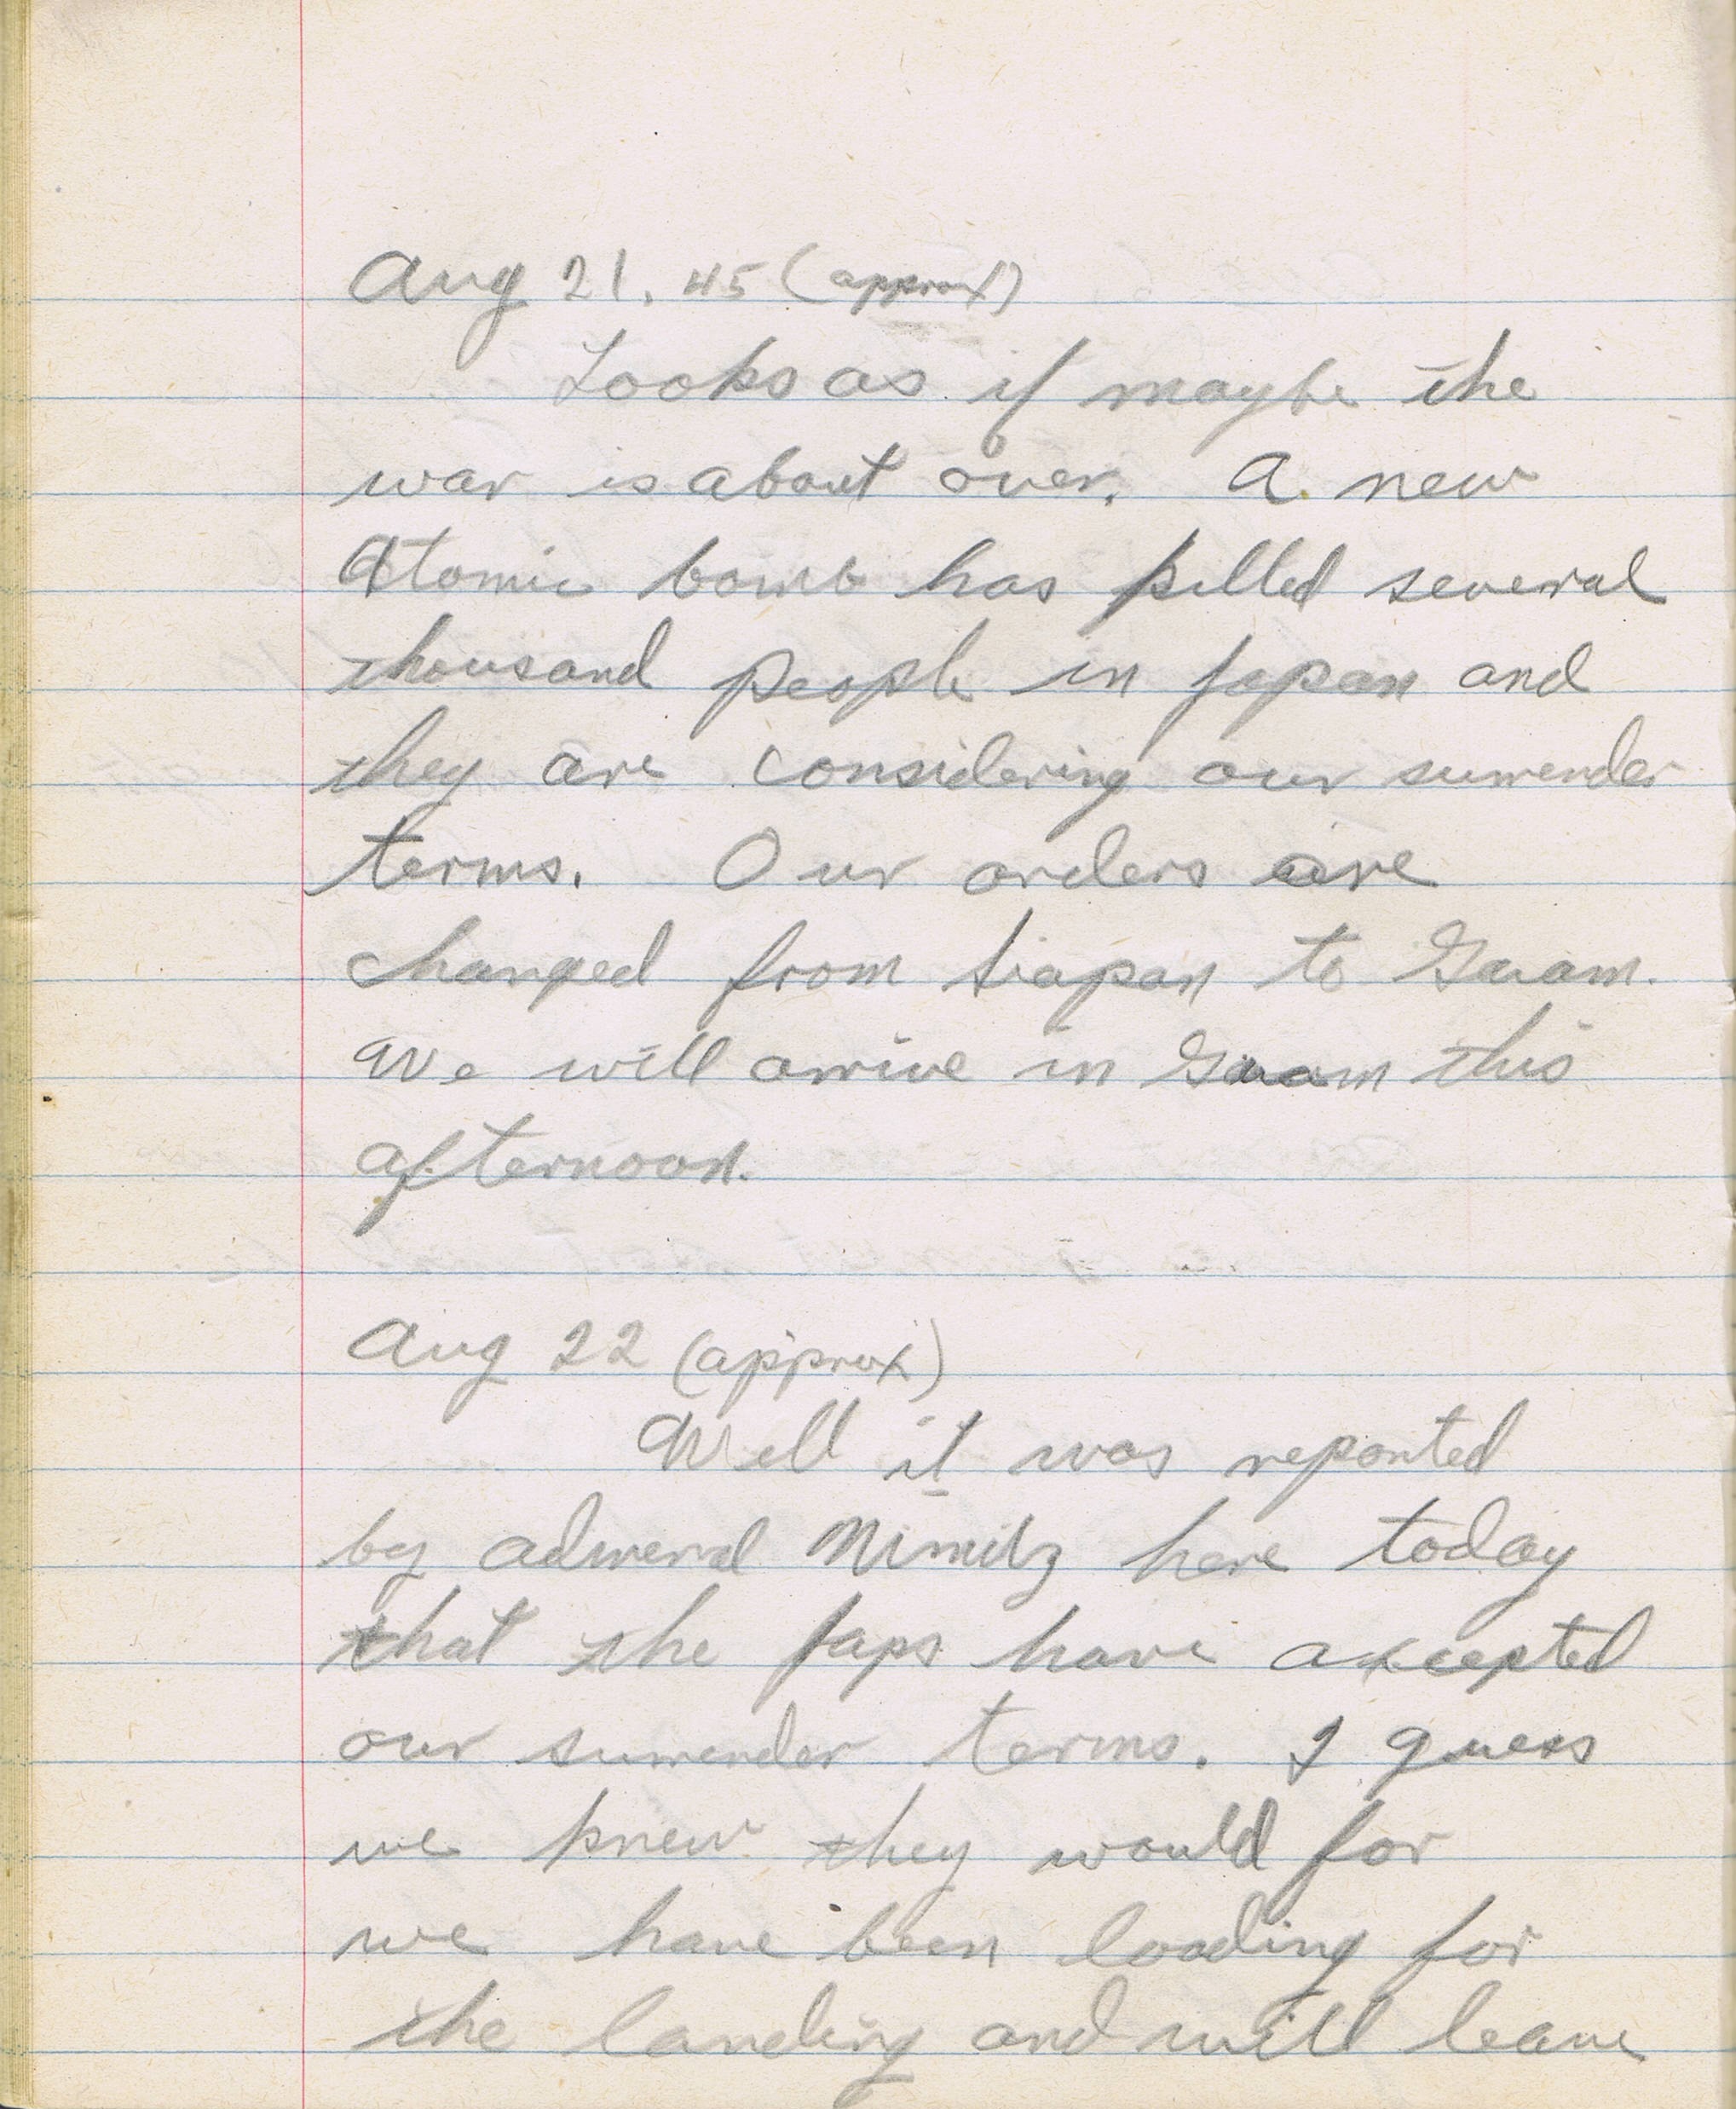 Aug 21. 45 (approx)
Looks as if maybe the
war is about over. A new
Atomic bomb has killed several
thousand people in Japan and
they are considering our surrender
terms. Our orders are
changed from Siapan to Guam.
We will arrive in Guam this
afternoon.
Aug 22 (approx)
Well it was reported
by admiral Nimitz here today
that the Japs have accepted
our surrender terms. I guess
we knew they would for
we have been loading for
the landing and will leave